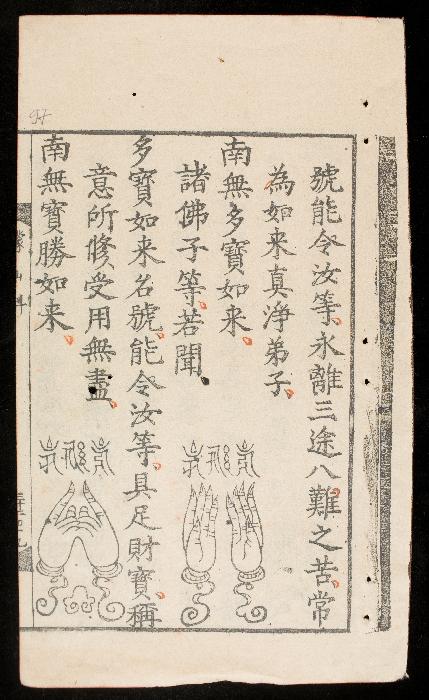 號能令汝等永離三途八難之苦常
為如来真淨弟子
南無多寶如来
諸佛子等若聞
多寶如来名號能令汝等具足財寶稱
意所修受用無盡
南無寶勝如来
97